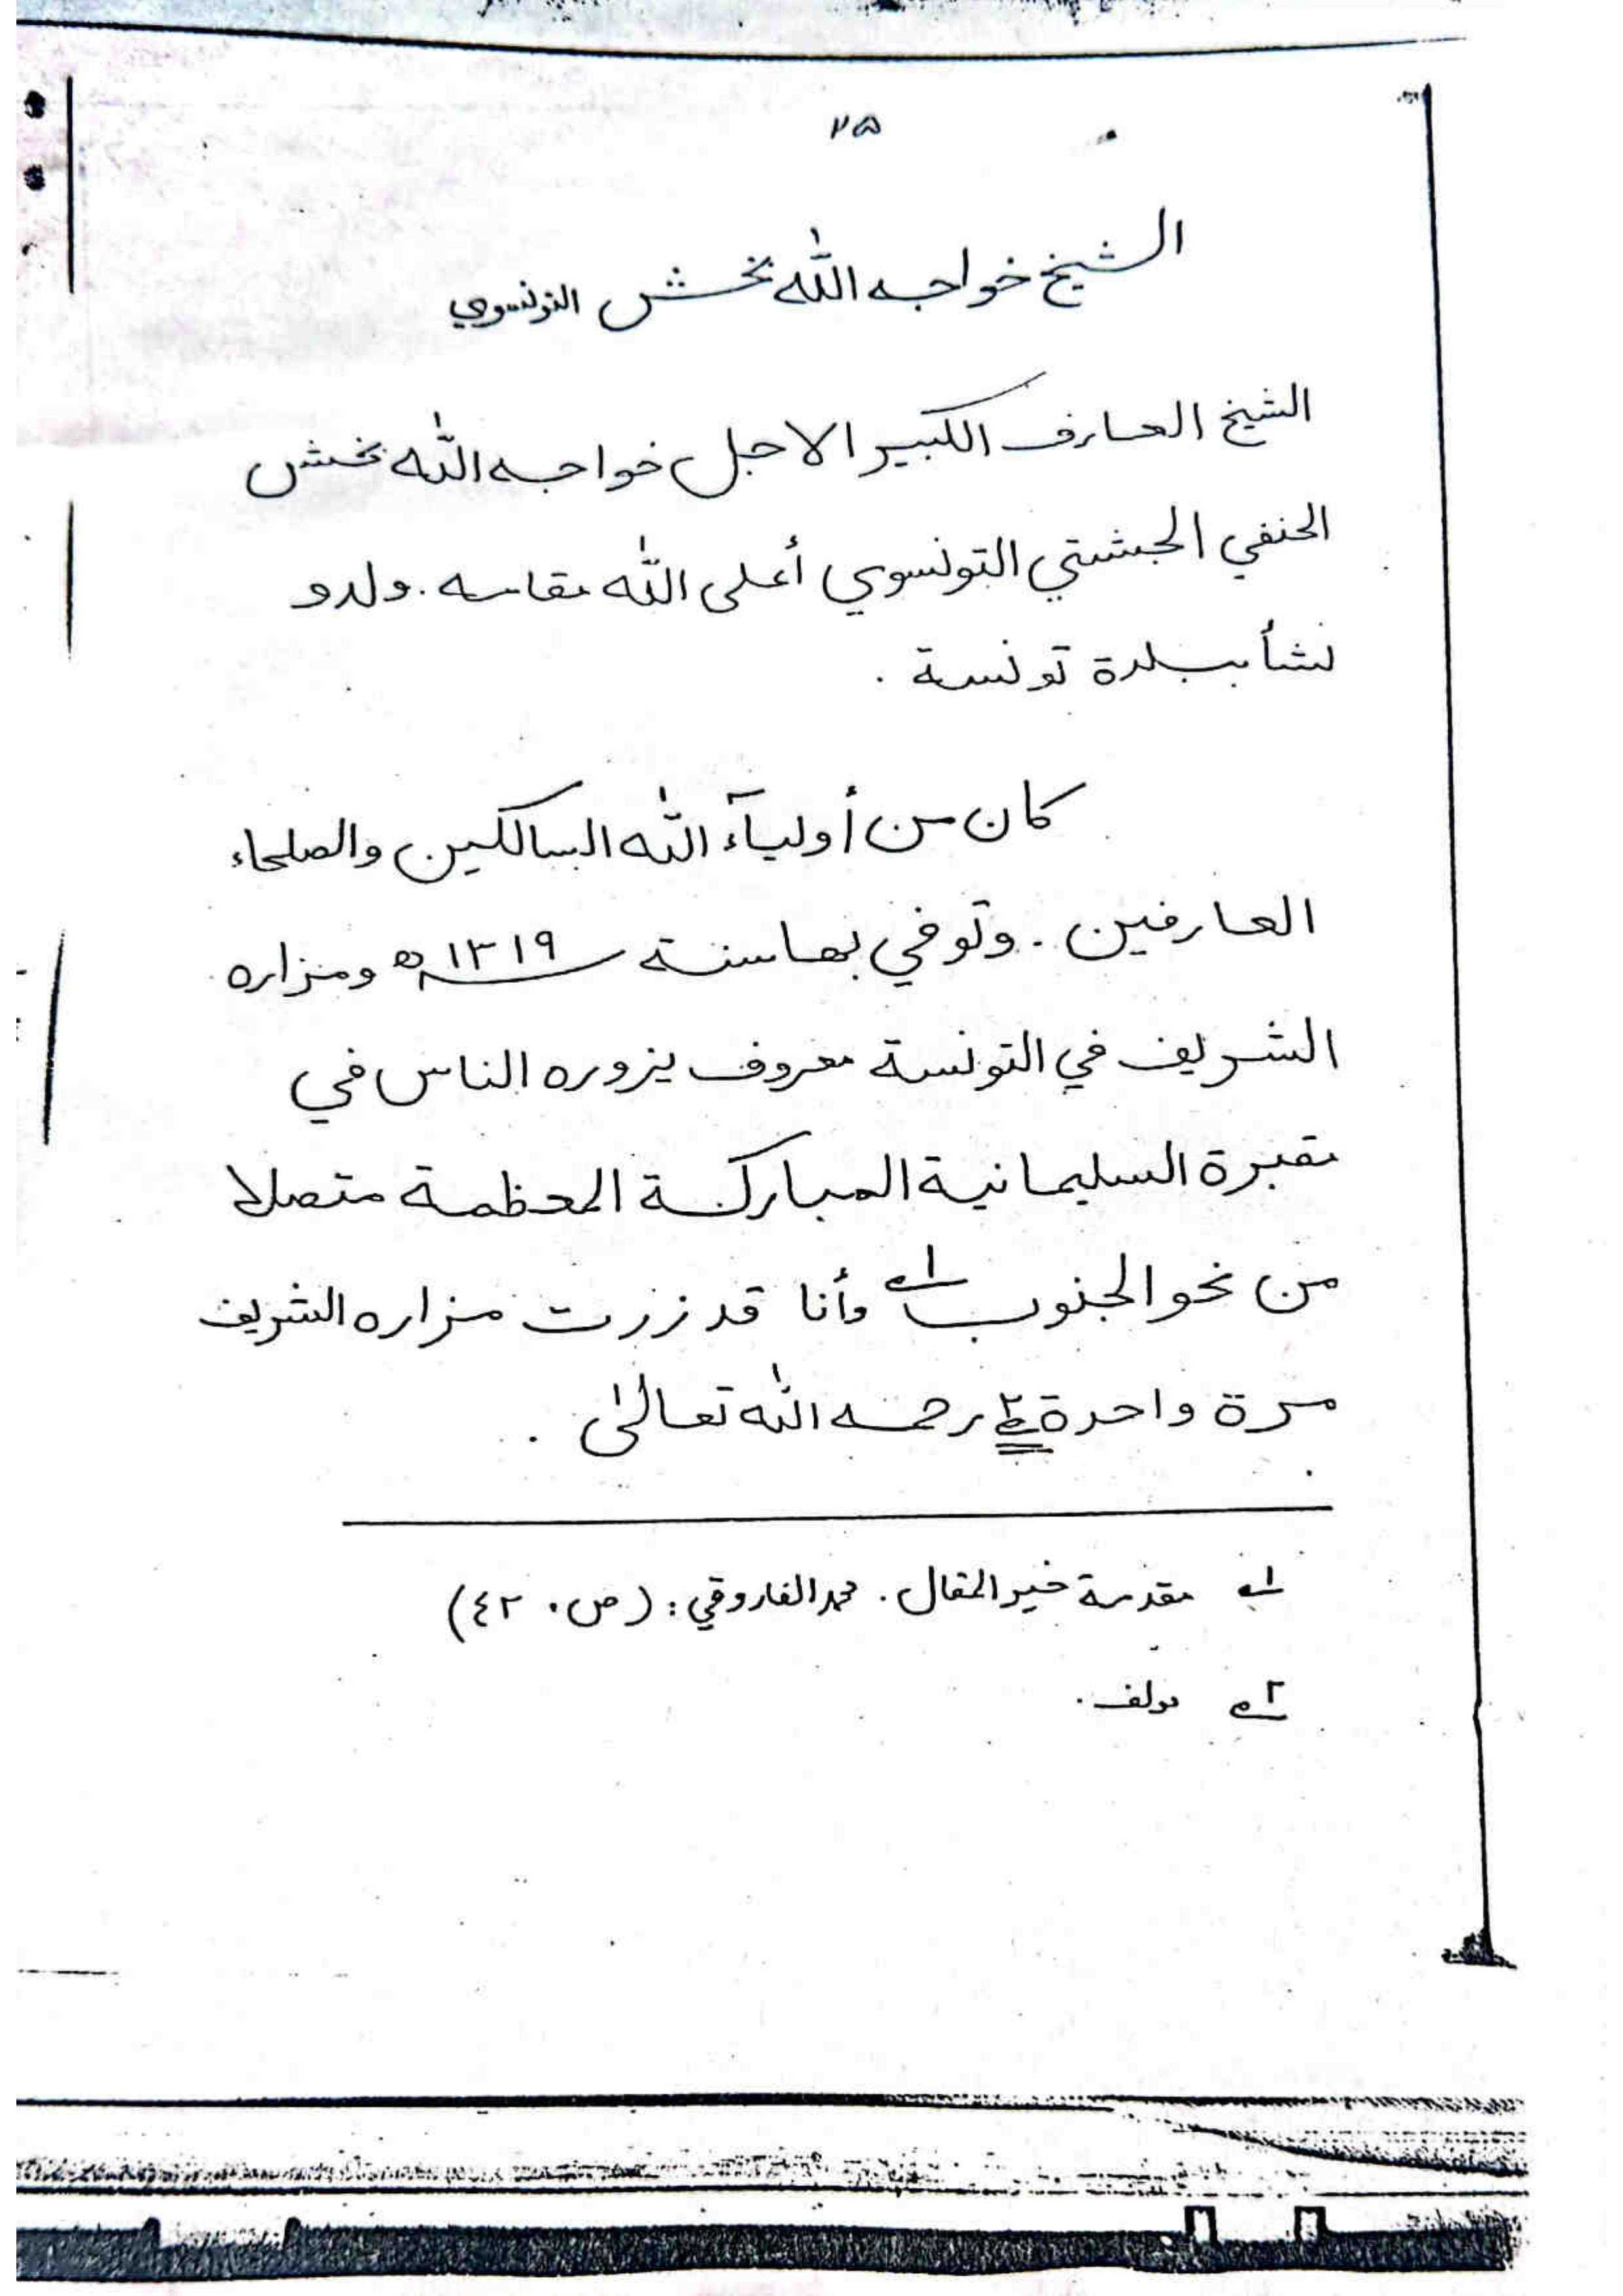 ٢٥
الشيخ خواجه الله بخش التونسوي
الشيخ العارف الكبير الاجل خواجه الله بخش
الحنفي الجشتي التونسوي أعلى الله مقامه . ولد و
نشأ ببلدة تونسة .
كان من أوليآء الله السالكين والصلحاء
العارفين . وتوفي بها سنة ١٣١٩ھ ومزاره
الشريف في التونسة معروف يزوره الناس في
مقبرة السليمانية المباركة المعظمة متصلا
من نحو الجنوب ١ـه وأنا قد زرت مزاره الشريف
مرة واحدة ٢ رحمه الله تعالىٰ .
١ـه مقدمة خير المقال . محمد الفاروقي : (ص . ٤٢)
٢ـه مولف .